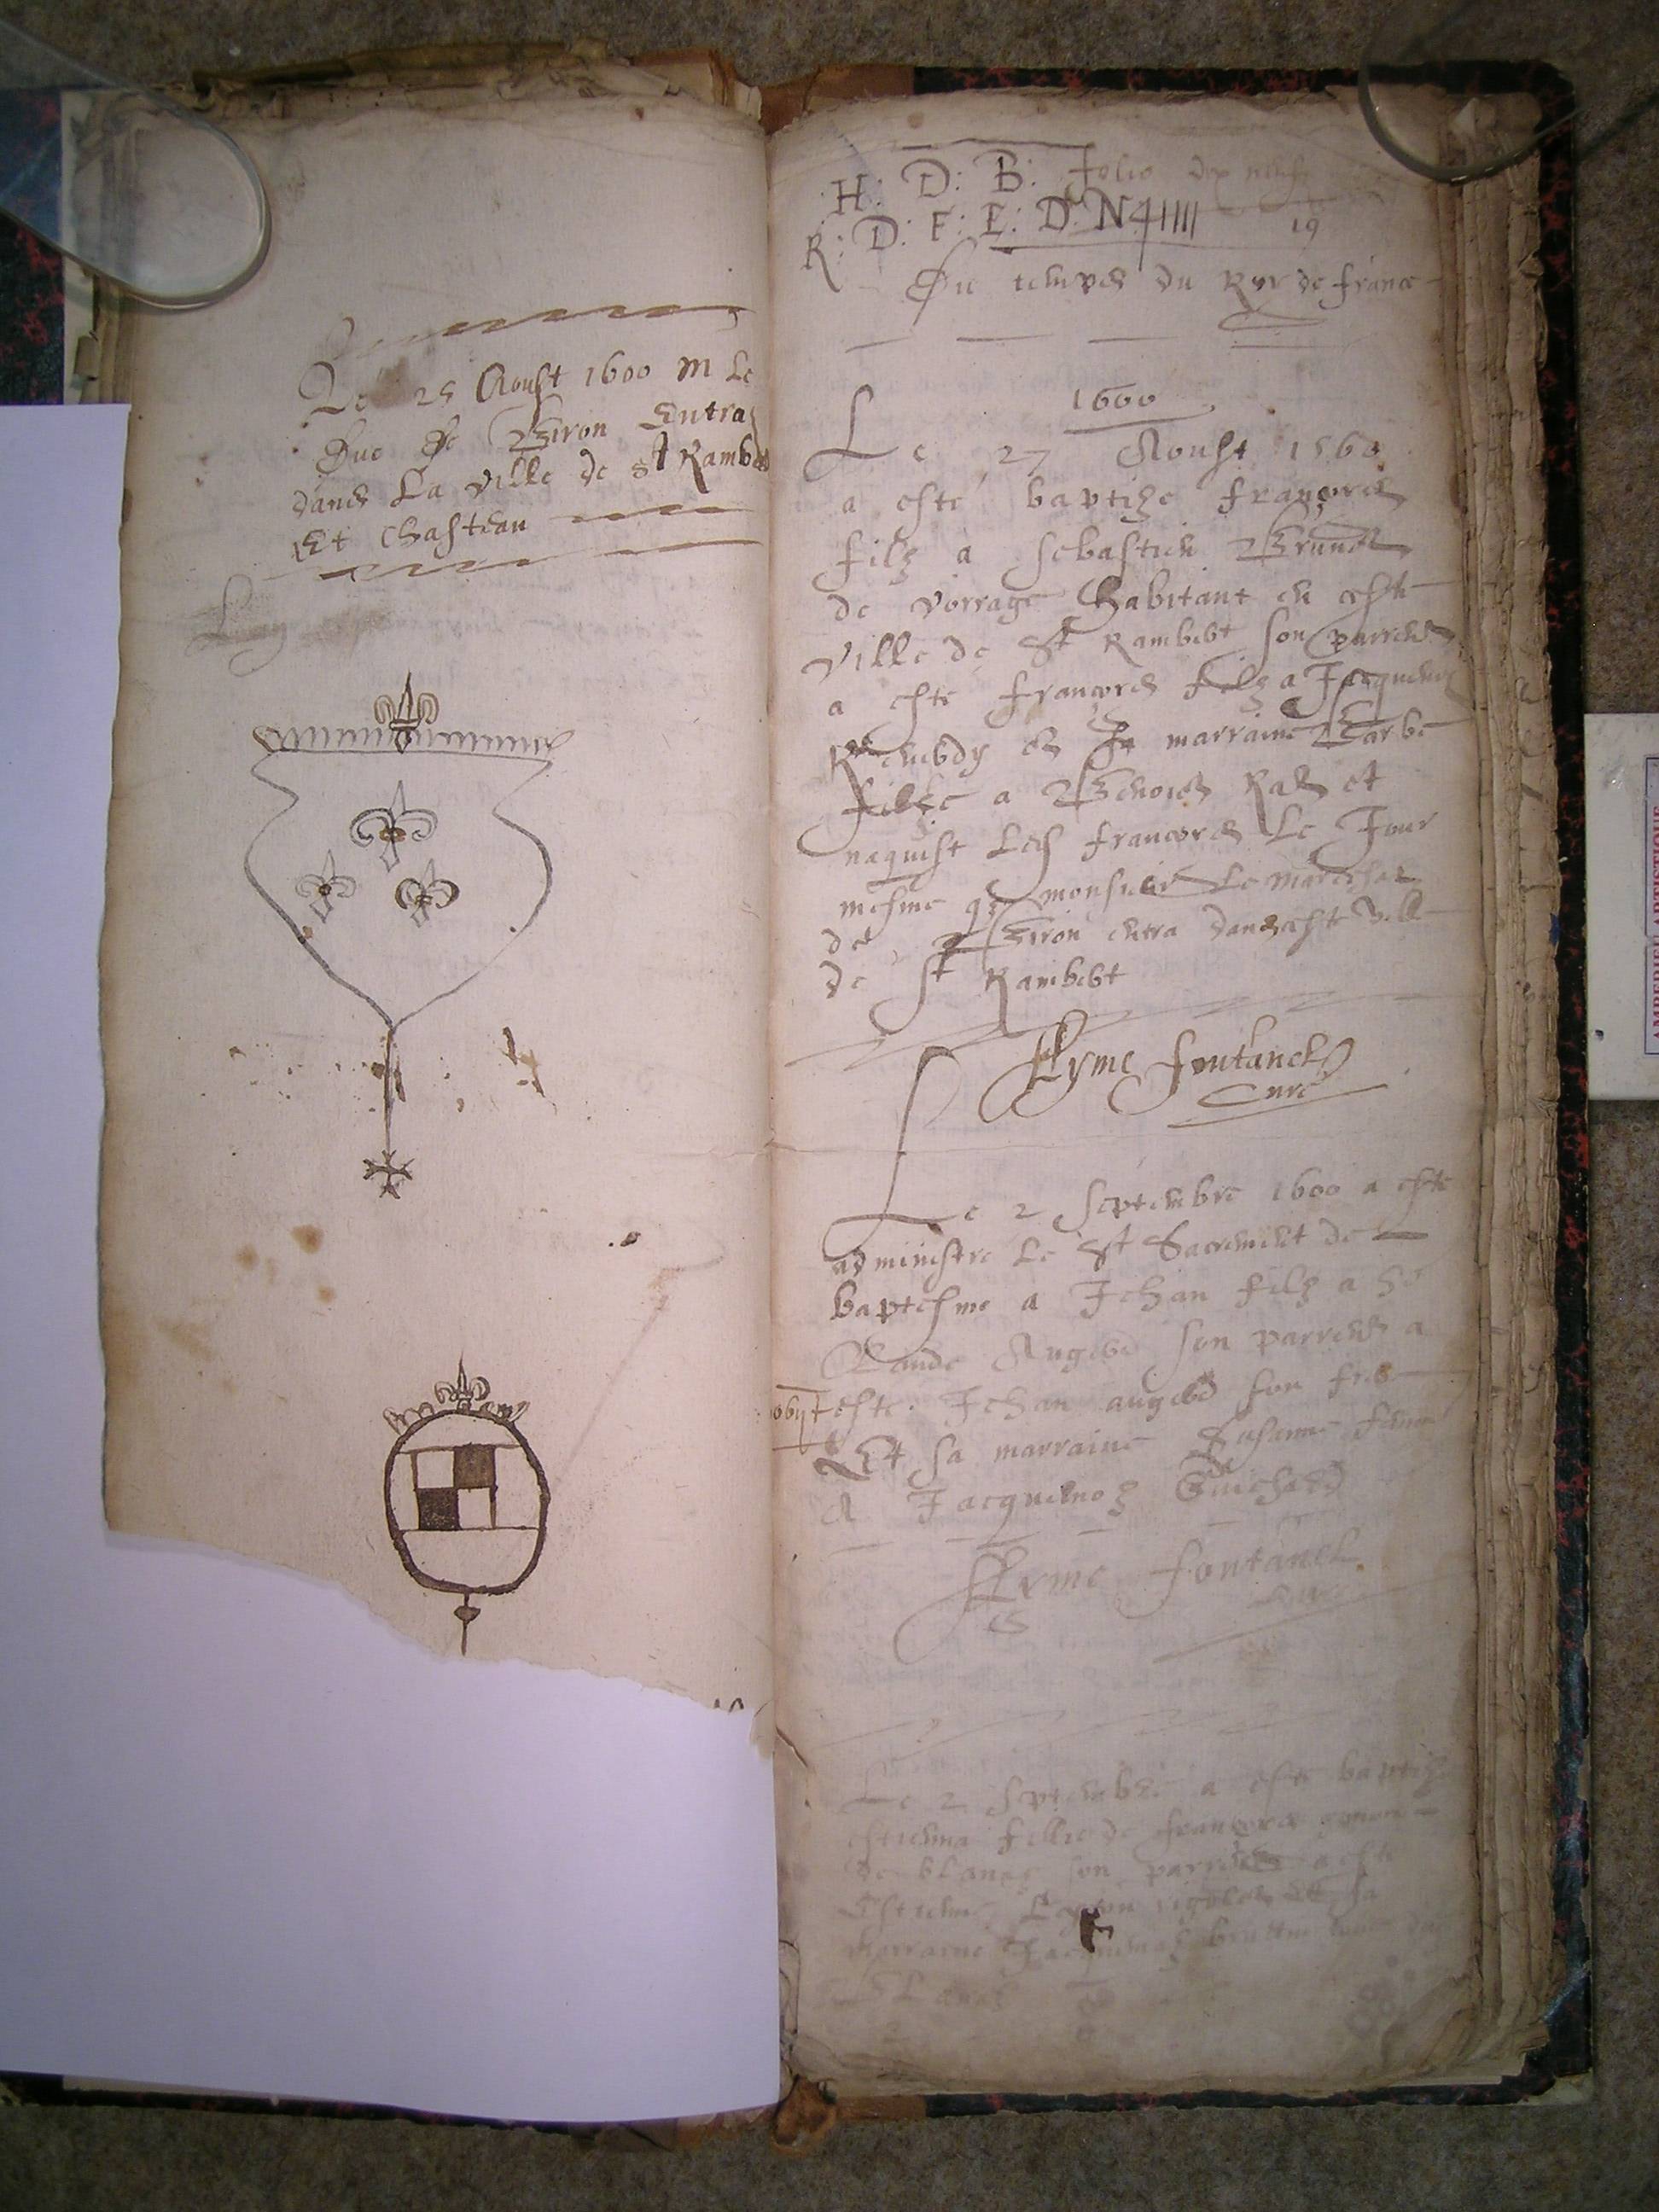 Le 25 Aoust 1600 M Le
Duc de Biron Entra
dans La ville de St Rambert
Et Chasteau
H: D: B: folio dix neuf
R: D: F: E: D: N 4 IIII 19
Du temps du Roy de france
1600
Le 27 Aoust 1560
a esté baptize françois
filz a sebastien Brunet
de vorrage habitant en ceste
ville de St Rambert son parrein
a esté françois filz a Jacquemoz
et sa marraine Barbe
fillie a Benoict et
naquist Led francois Le Jour
mesme q monsieur Le mareschal
de Biron entra dans ceste ville
de St Rambert
Ayme fontanel
cure
Le 2 septembre 1600 a esté
administre le St Sacrement de
baptesme a Jehan filz a
Claude Auger son parrein a
obyt esté Jehan auger son frere
Et sa marraine Susanne femme
A Jacquemoz Guichard
Ayme fontanel
cure
Le 2 septembre a esté baptize
estienna fillie de françois
de blanaz son parrein a esté
Estienne et sa
marraine Jacquemaz
Blanaz
AMBERIEU ARTISTIQUE